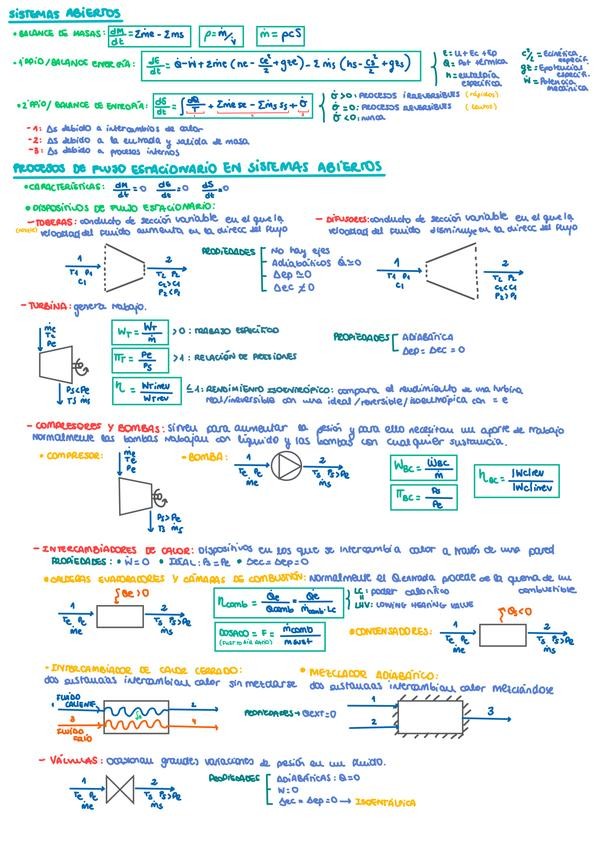 SISTEMAS ABIERTOS
• BALANCE DE MASAS: dM/dt = Σṁe - Σṁs   ρ = ṁ/V̇   ṁ = ρcS
• 1ºPPIO/BALANCE ENERGÍA: dE/dt = Q̇ - Ẇ + Σṁe (he - ce²/2 + gze) - Σ ṁs (hs - cs²/2 + gzs)
e = u + Ec + Ep
Q = Pot térmica
h = entalpía específica
c²/2 = Ecinética específ.
gz = Epotencial específ.
Ẇ = Potencia mecánica
• 2ºPPIO/ BALANCE DE ENTROPÍA: dS/dt = ∫ dQ̇/T + Σṁe se - Σṁs ss + σ̇
1 2 3
σ̇ > 0: PROCESOS IRREVERSIBLES (rápidos)
σ̇ = 0: PROCESOS REVERSIBLES (lentos)
σ̇ < 0: nunca
- 1: Δs debido a intercambios de calor
- 2: Δs debido a la entrada y salida de masa
- 3: Δs debido a procesos internos
PROCESOS DE FLUJO ESTACIONARIO EN SISTEMAS ABIERTOS
• CARACTERÍSTICAS: dM/dt = 0   dE/dt = 0   dS/dt = 0
• DISPOSITIVOS DE FLUJO ESTACIONARIO:
- TOBERAS: conducto de sección variable en el que la
velocidad del fluido aumenta en la direcc del flujo
- DIFUSORES: conducto de sección variable en el que la
velocidad del fluido disminuye en la direcc del flujo
1
T1 P1
C1
2
T2 P2
C2>C1
P2<P1
PROPIEDADES
No hay ejes
Adiabáticos Q̇≃0
Δep ≃ 0
Δec ≠ 0
1
T1 P1
C1
2
T2 P2
C2<C1
P2>P1
- TURBINA: genera trabajo.
ṁe
Te
Pe
Ps<Pe
Ts ṁs
WT = ẆT/ṁ > 0: TRABAJO ESPECÍFICO
πT = Pe/Ps > 1: RELACIÓN DE PRESIONES
η = WTirrev/WTrev ≤ 1: RENDIMIENTO ISOENTRÓPICO: compara el rendimiento de una turbina
real/irreversible con una ideal/reversible/isoentrópica con = e
PROPIEDADES
ADIABÁTICA
Δep = Δec = 0
- COMPRESORES Y BOMBAS: sirven para aumentar la presión y para ello necesitan un aporte de trabajo
Normalmente las bombas trabajan con líquido y las bombas con cualquier sustancia.
• COMPRESOR:
ṁe
Te
Pe
Ps>Pe
Ts ṁs
• BOMBA:
1
Te Pe
ṁe
2
Ts Ps>Pe
ṁs
WBC = ẆBC/ṁ
πBC = Ps/Pe
ηBC = |Wc|rev/|Wc|irrev
- INTERCAMBIADORES DE CALOR: Dispositivos en los que se intercambia calor a través de una pared
PROPIEDADES: • Ẇ = 0 • IDEAL: Ps = Pe • Δec = Δep = 0
• CALDERAS EVAPORADORES Y CÁMARAS DE COMBUSTIÓN: Normalmente el Q entrada procede de la quema de un
combustible
Qe>0
1
Te Pe
ṁe
2
Ts Ps
ṁs
ηcomb = Q̇e/Q̇comb = Q̇e/ṁcomb·Lc
LC: poder calorífico
LHV: LOWING HEATING VALUE
DOSADO = F = ṁcomb/ṁaire
(FUEL TO AIR RATIO)
• CONDENSADORES:
Qs<0
1
Te Pe
ṁe
2
Ts Ps
ṁs
- INTERCAMBIADOR DE CALOR CERRADO:
dos sustancias intercambian calor sin mezclarse
• MEZCLADOR ADIABÁTICO:
dos sustancias intercambian calor mezclándose
FLUIDO
CALIENTE
1
2
3
FLUIDO
FRÍO
4
PROPIEDADES → Qext=0
1
2
3
- VÁLVULAS: ocasionan grandes variaciones de presión en un fluido.
1
Te Pe
ṁe
2
Ts Ps>Pe
ṁs
PROPIEDADES
ADIABÁTICAS: Q=0
W=0
Δec = Δep = 0 → ISOENTÁLPICA